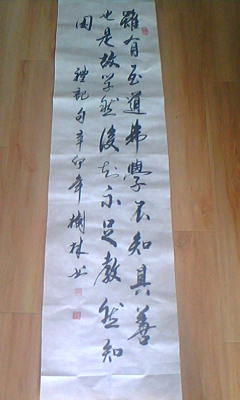 雖有至道弗學不知其善
也是故学然後知不足教然知
困
禮記句辛卯年樹林书